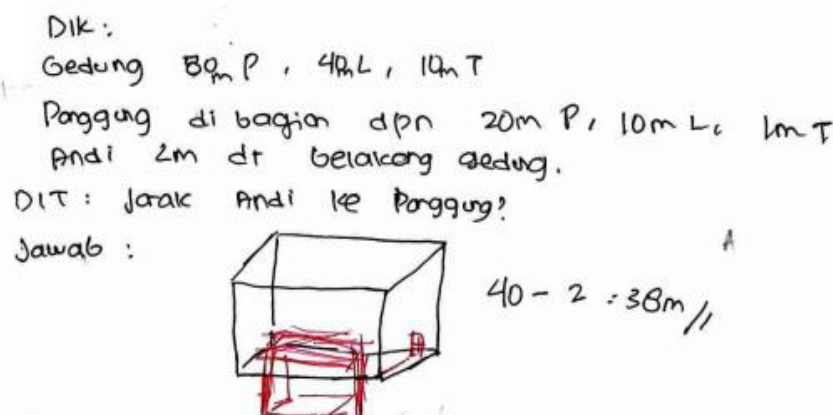 DIK :
Gedung 50m P, 40m L, 10m T
Panggung di bagian dpn 20m P, 10m L, 1m T
Andi 2m dr belakang gedung.
DIT : Jarak Andi ke Panggung?
Jawab :
A
40 - 2 : 38m //